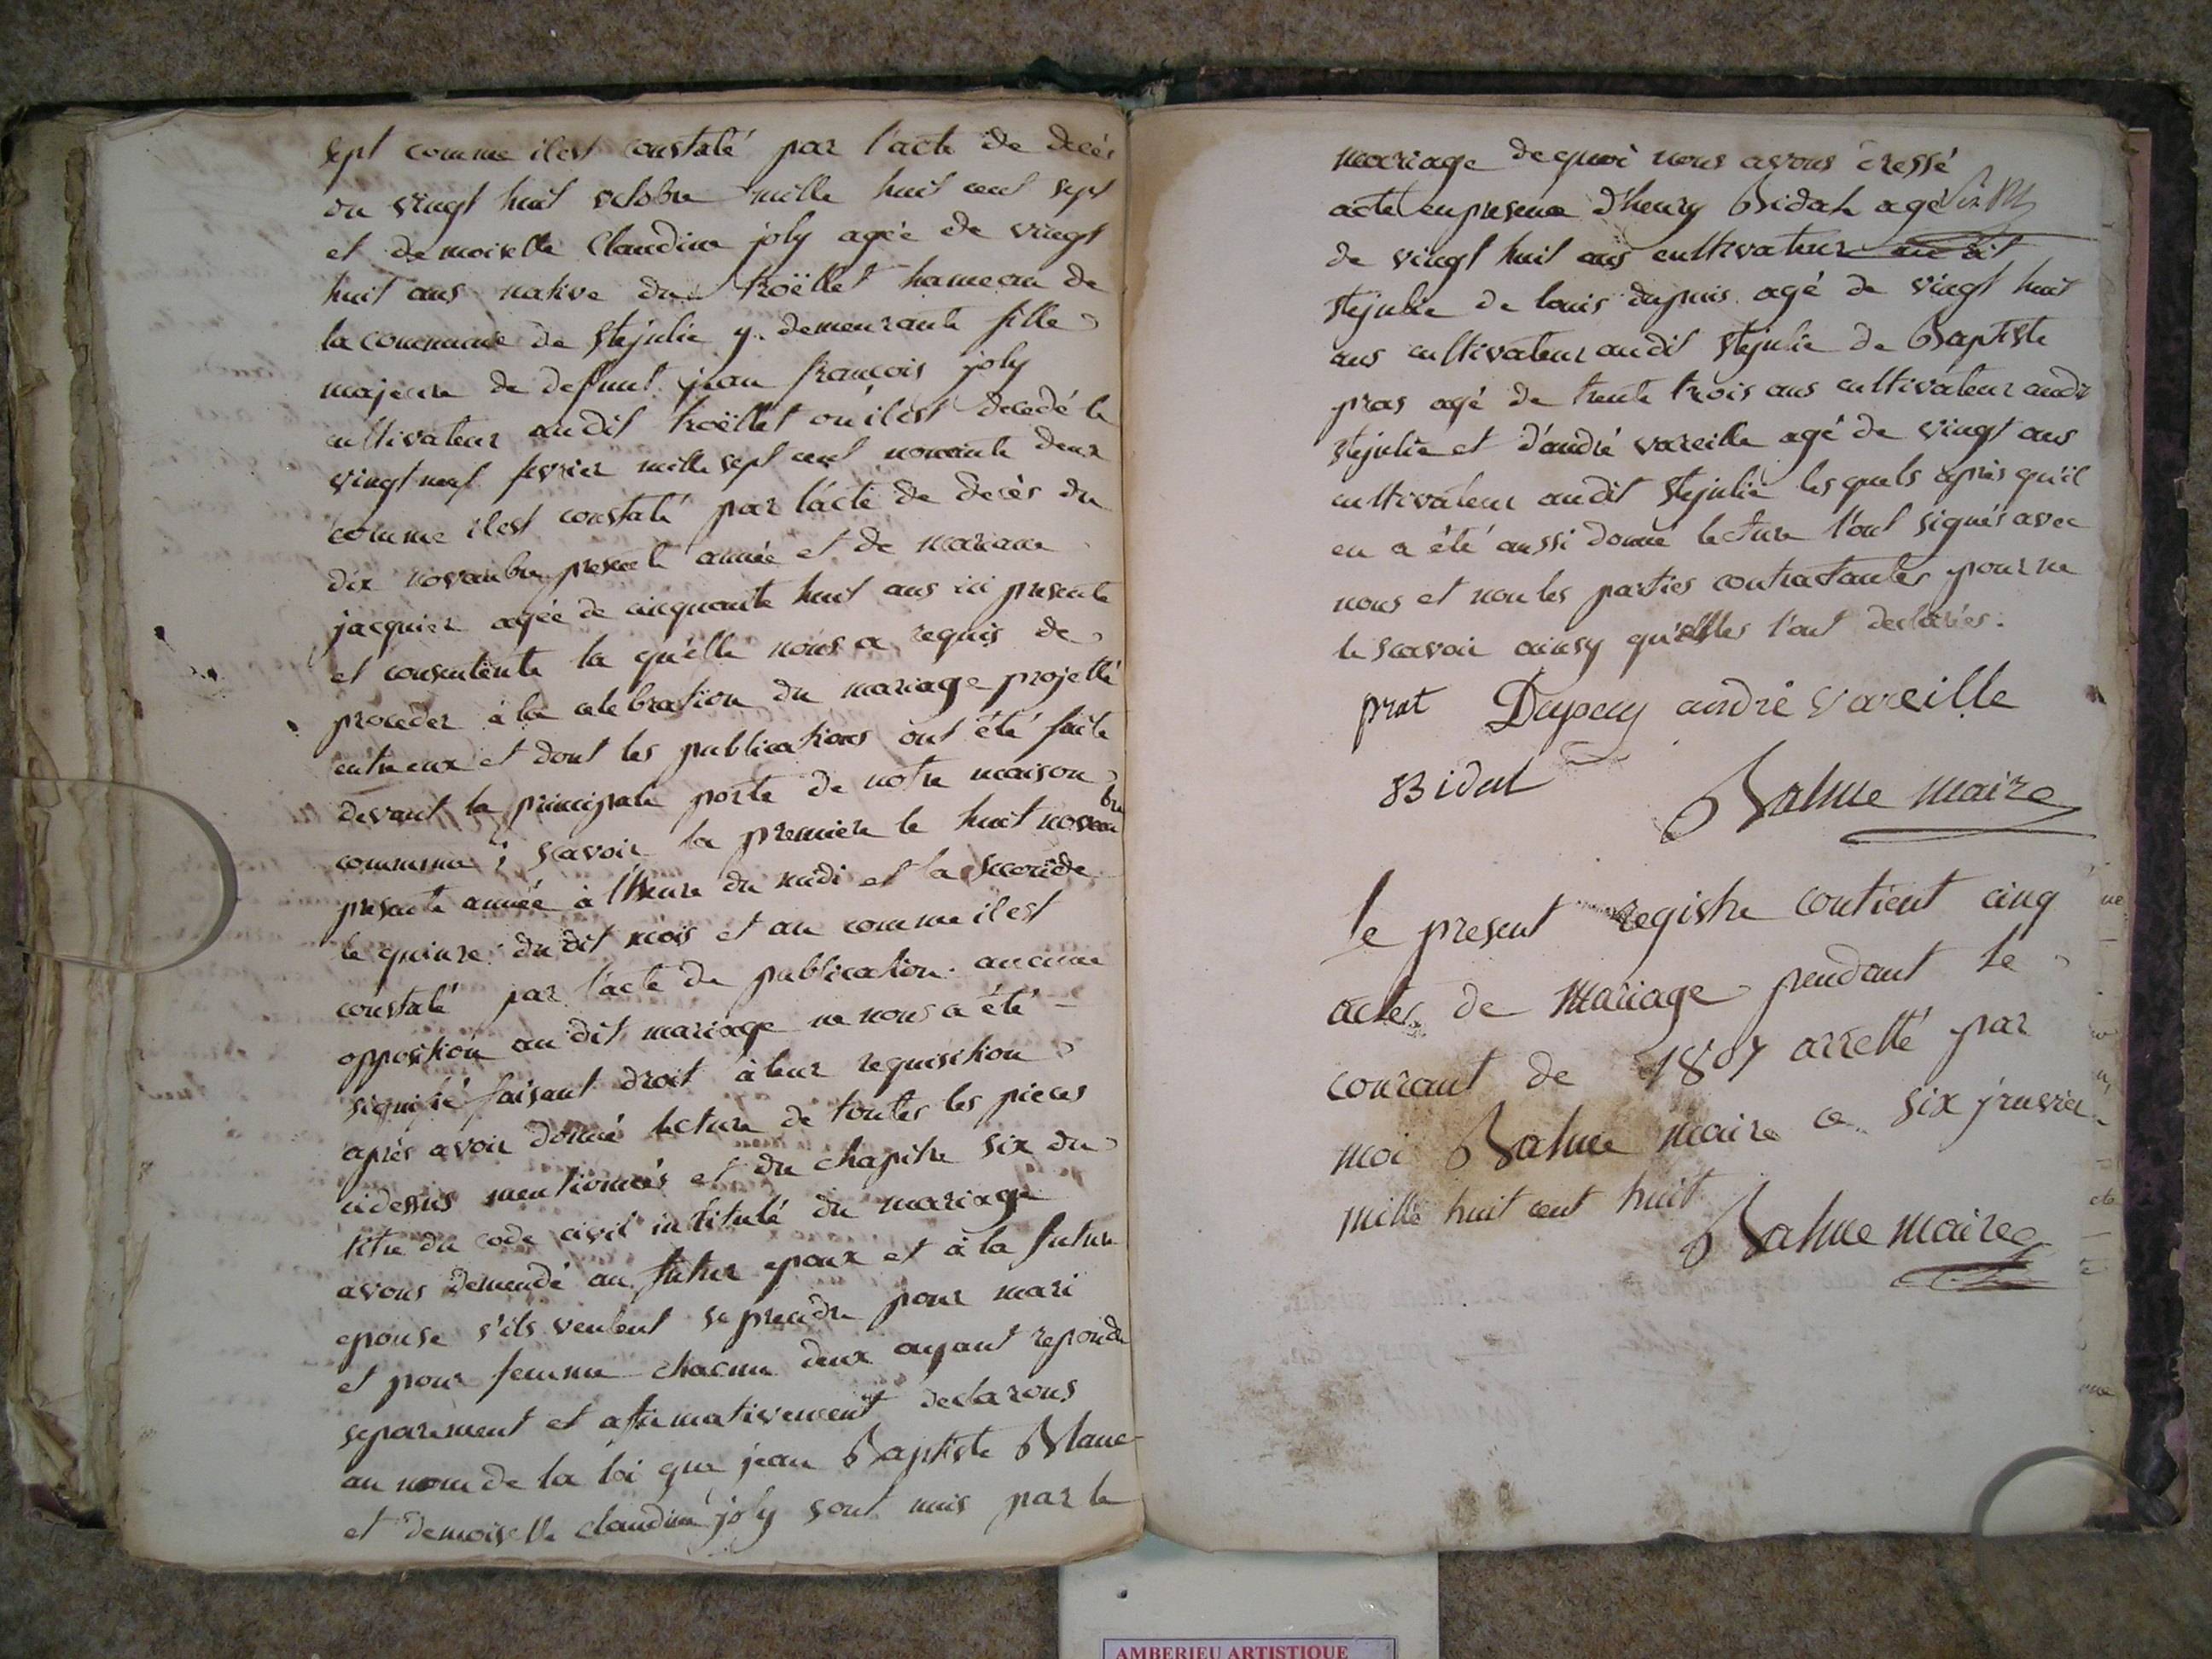 sept comme il est constaté par l'acte de decès
du vingt huit octobre mille huit cent sept
et demoiselle Claudine joly agée de vingt
huit ans native du troëllet hameau de
la commune de Stejulie y demeurante fille
majeure de defunt jean françois joly
cultivateur audit troëllet ou il est decedé le
vingt neuf fevrier mille sept cent nonante deux
comme il est constaté par l'acte de decès du
dix novembre presente année et de mariane
jacquier agée de cinquante huit ans ici presente
et consentente la qu'elle nous a requis de
proceder à la celebration du mariage projetté
entre eux et dont les publications ont été faite
devant la principale porte de notre maison
commune ; scavoir la premiere le huit novembre
presente année à l'heure du midi et la seconde
le quinze du dit mois et an comme il est
constaté par l'acte de publication. aucune
opposition audit mariage ne nous a été
signifié faisant droit à leur requisition
après avoir donné lecture de toutes les pieces
cidessus mentionnés et du chapitre six du
titre du code civil intitulé du mariage
avons demendé au futur epoux et à la future
epouse s'ils veulent se prendre pour mari
et pour femme chacun deux ayant repondu
separement et afirmativement declarons
au nom de la loi que jean Baptiste Blanc
et demoiselle claudine joly sont unis par le
mariage de quoi nous avons dressé
acte en presence d'henry Bidat agé
de vingt huit ans cultivateur audit
Stejulie de louis dupuis agé de vingt huit
ans cultivateur audit Stejulie de Baptiste
pras agé de trente trois ans cultivateur audit
Stejulie et d'andré vareille agé de vingt ans
cultivateur audit Stejulie les quels après qu'il
en a été aussi donné lecture l'ont signés avec
nous et non les parties contractantes pour ne
le scavoir ainsy qu'elles l'ont declarés.
prat Dupuy andré vareille
Bidat
Balme maire
le present registre contient cinq
actes de Mariage pendant le
courant de 1807 arretté par
moi Balme maire ce six janvier
mille huit cent huit
Balme maire
AMBERIEU ARTISTIQUE